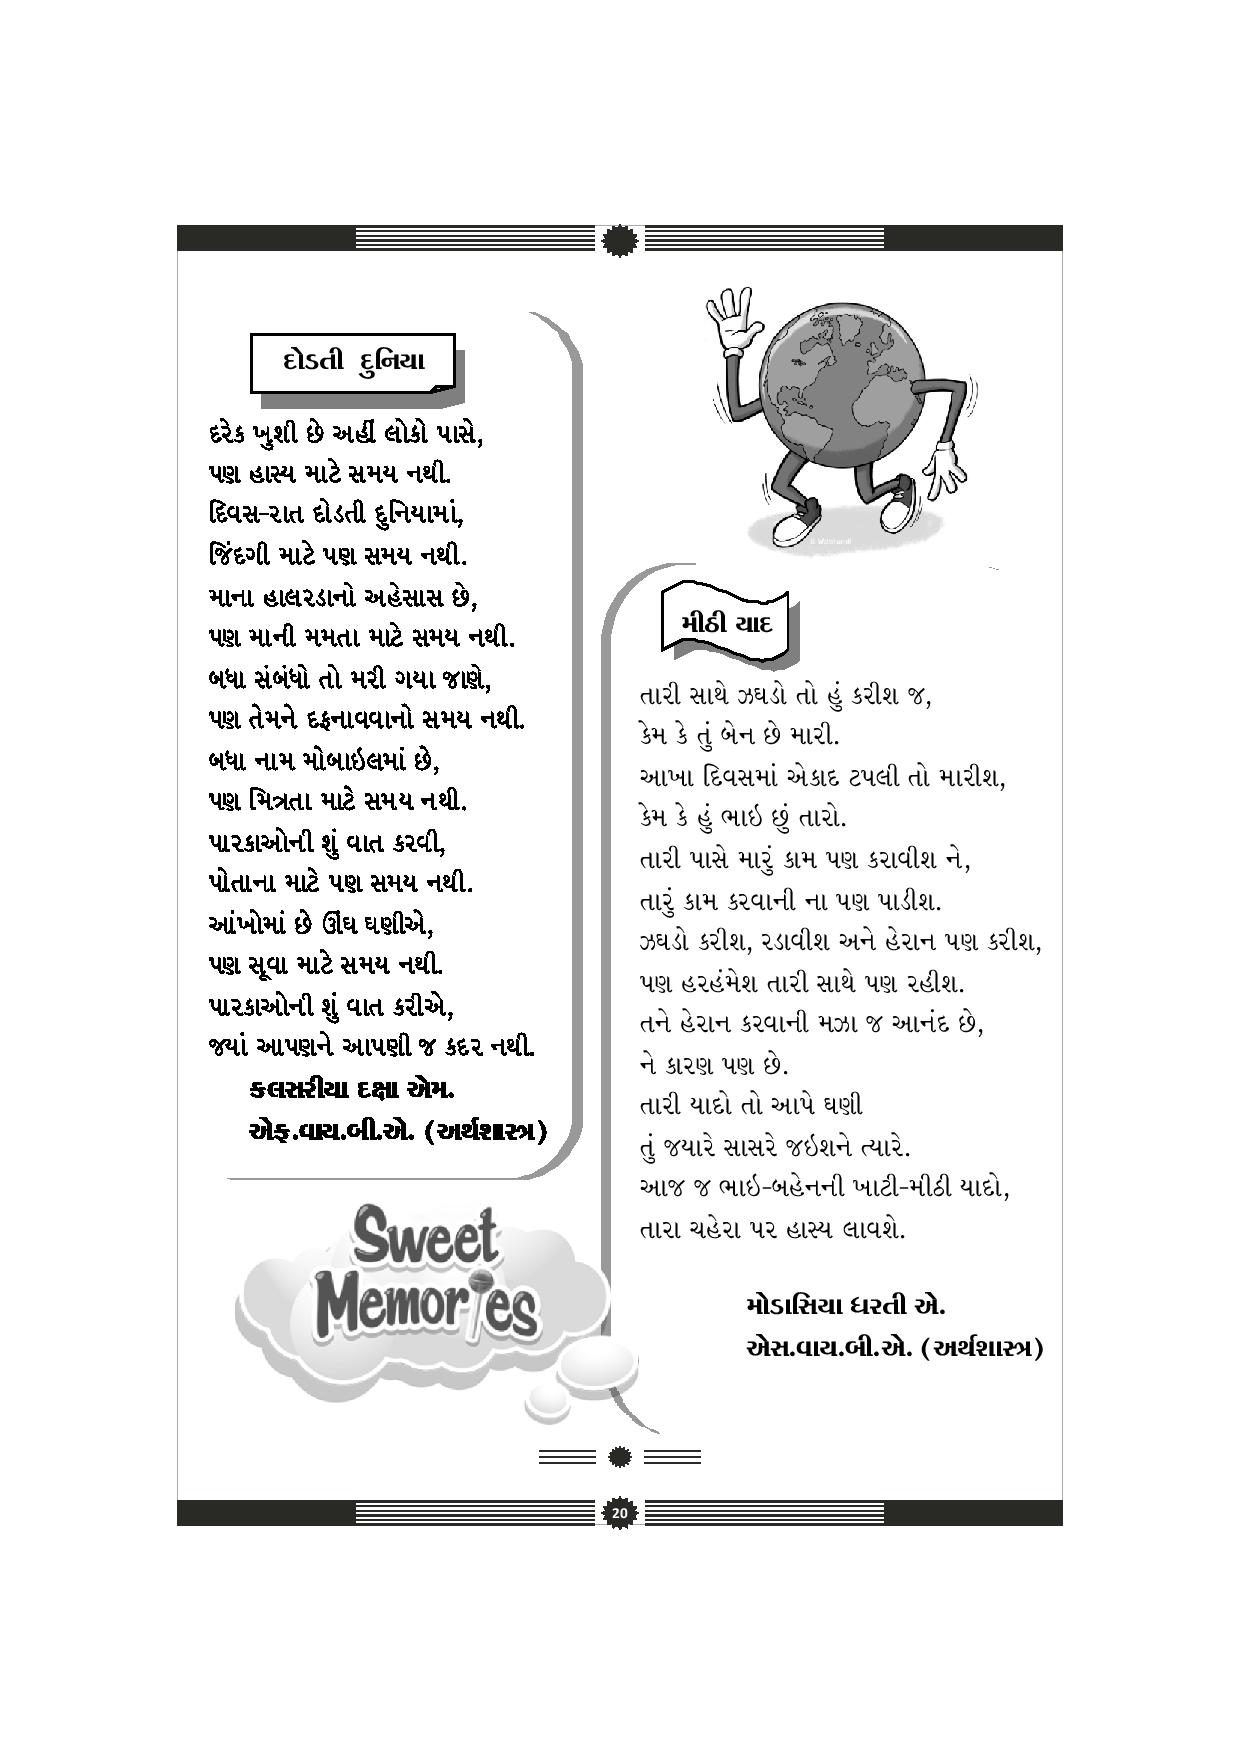 દોડતી દુનિયા
દરેક ખુશી છે અહીં લોકો પાસે,
પણ હાસ્ય માટે સમય નથી.
દિવસ-રાત દોડતી દુનિયામાં,
જિંદગી માટે પણ સમય નથી.
માના હાલરડાનો અહેસાસ છે,
પણ માની મમતા માટે સમય નથી.
બધા સંબંધો તો મરી ગયા જાણે,
પણ તેમને દફનાવવાનો સમય નથી.
બધા નામ મોબાઇલમાં છે,
પણ મિત્રતા માટે સમય નથી.
પારકાઓની શું વાત કરવી,
પોતાના માટે પણ સમય નથી.
આંખોમાં છે ઊંઘ ઘણીએ,
પણ સૂવા માટે સમય નથી.
પારકાઓની શું વાત કરીએ,
જ્યાં આપણને આપણી જ કદર નથી.
કલસરીયા દક્ષા એમ.
એફ.વાય.બી.એ. (અર્થશાસ્ત્ર)
Sweet
Memories
મીઠી યાદ
તારી સાથે ઝઘડો તો હું કરીશ જ,
કેમ કે તું બેન છે મારી.
આખા દિવસમાં એકાદ ટપલી તો મારીશ,
કેમ કે હું ભાઇ છું તારો.
તારી પાસે મારું કામ પણ કરાવીશ ને,
તારું કામ કરવાની ના પણ પાડીશ.
ઝઘડો કરીશ, રડાવીશ અને હેરાન પણ કરીશ,
પણ હરહંમેશ તારી સાથે પણ રહીશ.
તને હેરાન કરવાની મઝા જ આનંદ છે,
ને કારણ પણ છે.
તારી યાદો તો આપે ઘણી
તું જયારે સાસરે જઇશને ત્યારે.
આજ જ ભાઇ-બહેનની ખાટી-મીઠી યાદો,
તારા ચહેરા પર હાસ્ય લાવશે.
મોડાસિયા ધરતી એ.
એસ.વાય.બી.એ. (અર્થશાસ્ત્ર)
20